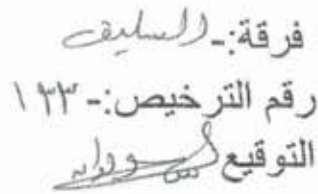 فرقة:- السليف
رقم الترخيص:- ١٣٣
التوقيع